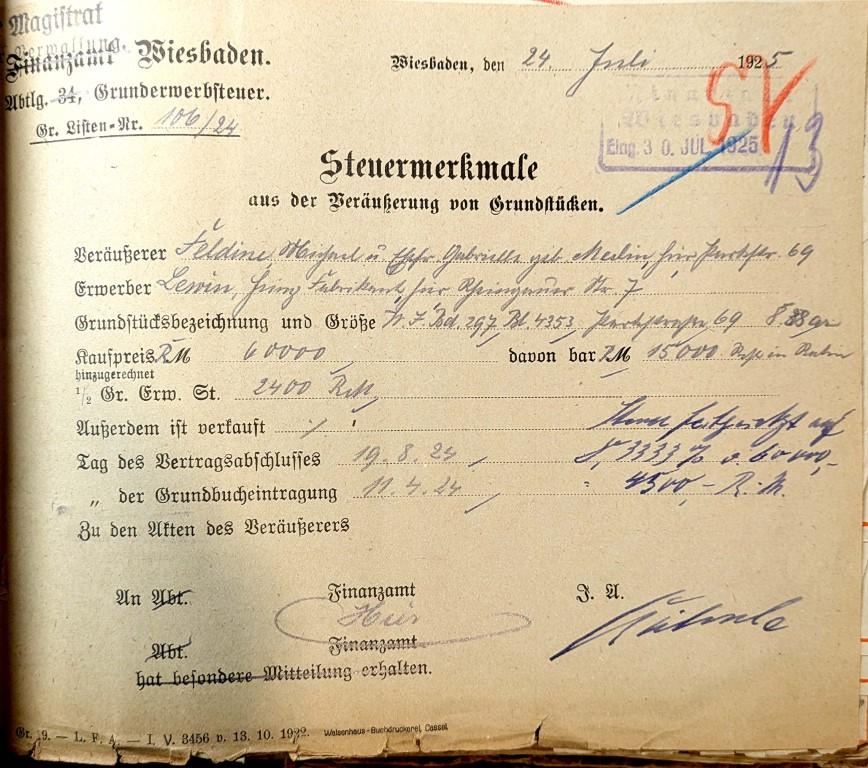 Magistrat
Verwaltung.
Finanzamt Wiesbaden.
Wiesbaden, den 24. Juli 1925
Abtlg. 34, Grunderwerbsteuer.
Gr. Listen-Nr. 106/24
Wiesbaden
Eing. 30. JUL. 1925
13
Steuermerkmale
aus der Veräußerung von Grundstücken.
Veräußerer Feldine, Michael u. Ehefr. Gabrielle geb. hier Parkstr. 69
Erwerber Lewin, Fabrikant, hier Rheingauer Str. 7
Grundstücksbezeichnung und Größe Bd. 297 Bl. 4353 Parkstraße 69
Kaufpreis RM 60000 davon bar RM 15000 Rest in
hinzugerechnet
1/2 Gr. Erw. St. 2400 RM
Außerdem ist verkauft ./.
festgesetzt auf
Tag des Vertragsabschlusses 19.8.24
8,3333 % v. 60000,-
„ der Grundbucheintragung 11.4.24
4500,- R.M.
Zu den Akten des Veräußerers
An Abt. Finanzamt J. A.
Hier
Abt. Finanzamt
hat besondere Mitteilung erhalten.
Gr. 9. — L. F. A. — I. V. 3456 v. 13. 10. 1922. Waisenhaus-Buchdruckerei, Cassel